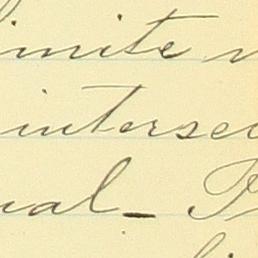 imite
intersec
ual_ P